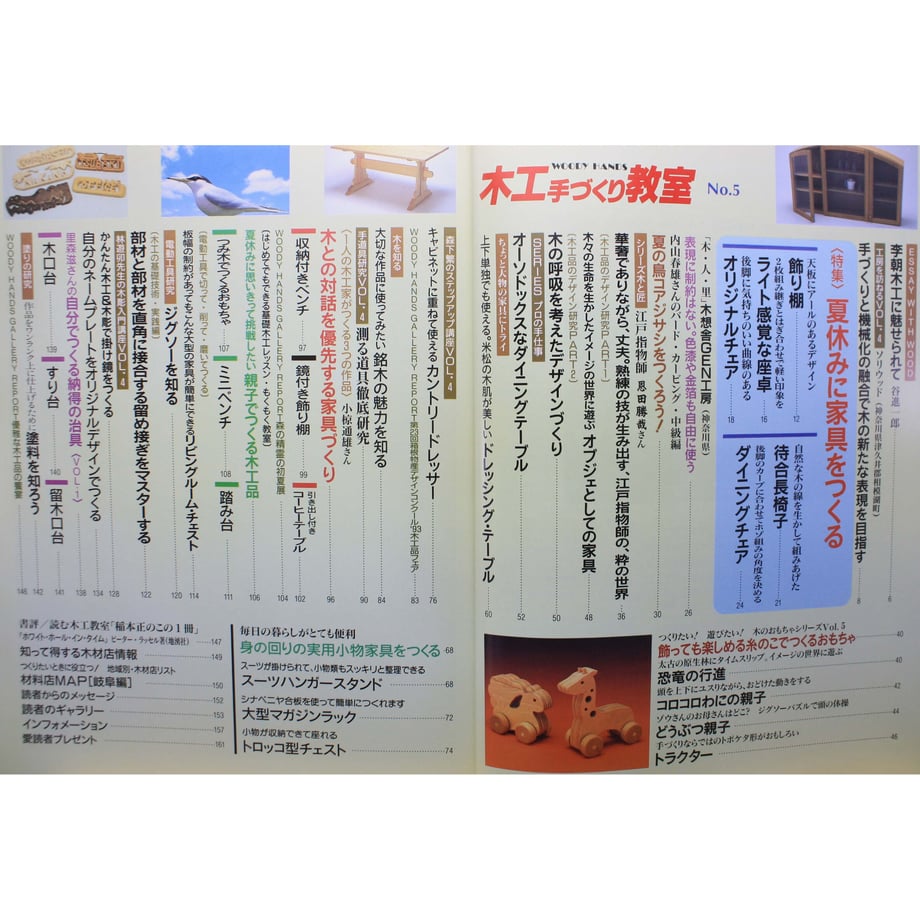 WOODY HANDS
木工手づくり教室 No.5
ESSAY WITH WOOD
李朝木工に魅せられて 谷進一郎
6
工房を訪ねるVOL.4 ソリウッド(神奈川県津久井郡相模湖町)
手づくりと機械化の融合で木の新たな表現を目指す
8
特集 夏休みに家具をつくる
天板にアールのあるデザイン
飾り棚
12
2枚組み継ぎとはぎ合わせで軽い印象を
ライト感覚な座卓
16
後脚に気持ちのいい曲線のある
オリジナルチェア
18
自然な木の線を生かして組みあげた
待合長椅子
21
後脚のカーブに合わせてホゾ組みの角度を決める
ダイニングチェア
24
〈木・人・里〉木想舎GOEN工房(神奈川県)
表現に制約はない。色漆や金箔も自由に使う
26
内山春雄さんのバード・カービング・中級編
夏の鳥コアジサシをつくろう!
30
シリーズ木と匠 江戸指物師 恩田勝哉さん
華奢でありながら、丈夫。熟練の技が生み出す、江戸指物師の、粋の世界
36
〈木工品のデザイン研究PART1〉
木の呼吸を考えたデザインづくり
〈木工品のデザイン研究PART2〉
木々の生命を生かしたイメージの世界に遊ぶ オブジェとしての家具
48
SERIES プロの手仕事
オーソドックスなダイニングテーブル
50
ちょっと大物の家具にトライ
上下単独でも使える。米松の木肌が美しい ドレッシング・テーブル
60
つくりたい! 遊びたい! 木のおもちゃシリーズVol.5
飾っても楽しめる糸のこでつくるおもちゃ 40
太古の原生林にタイムスリップ。イメージの世界に遊ぶ
恐竜の行進 40
頭を上下にユスリながら、おどけた動きをする
コロコロわにの親子 42
ゾウさんのお母さんはどこ? ジグソーパズルで頭の体操
どうぶつ親子 44
手づくりならではのトボケタ形がおもしろい
トラクター 46
森下繁のステップアップ講座VOL.4
キャビネットに重ねて使えるカントリードレッサー
76
WOODY HANDS GALLERY REPORT・第23回箱根物産デザインコンクール'93木工品フェア
83
木を知る
大切な作品に使ってみたい 銘木の魅力を知る
84
手道具研究VOL.4 測る道具徹底研究
90
〈一人の木工家がつくる3つの作品〉 小椋通雄さん
木との対話を優先する家具づくり
収納付きベンチ 97
鏡付き飾り棚 99
引き出し付きコーヒーテーブル
102
WOODY HANDS GALLERY REPORT・森の精霊の初夏展
104
〈はじめてでもできる基礎木工レッスン・もくもく教室〉
夏休みに思いきって挑戦したい 親子でつくる木工品
106
つみ木でつくるおもちゃ 107
ミニベンチ 108
踏み台
111
〈電動工具で切って・削って・磨いてつくる〉
板幅の制約があってもこんな大型の家具が簡単にできるリビングルーム・チェスト
114
電動工具研究 ジグソーを知る
120
〈木工の基礎技術・実践編〉
部材と部材を直角に接合する留め接ぎをマスターする
122
林遊卯先生の木彫入門講座VOL.4
かんたん木工&木彫で掛け鏡をつくる
128
自分のネームプレートをオリジナルデザインでつくる
134
里森滋さんの自分でつくる納得の治具〈VOL.1〉
138
木口台 139
すり台 140
留木口台
141
塗りの研究 作品をワンランク上に仕上げるために 塗料を知ろう
142
WOODY HANDS GALLERY REPORT・優雅な木工品の饗宴
146
毎日の暮らしがとても便利
身の回りの実用小物家具をつくる 68
スーツが掛けられて、小物類もスッキリと整理できる
スーツハンガースタンド 68
シナベニヤ合板を使って簡単につくれます
大型マガジンラック 72
小物が収納できて座れる
トロッコ型チェスト 74
書評/読む木工教室「稲本正のこの1冊」
「ホワイト・ホール・イン・タイム」ピーター・ラッセル著(地湧社) 147
知って得する木材店情報 149
つくりたいときに役立つ! 地域別・木材店リスト
材料店MAP[岐阜編] 150
読者からのメッセージ 152
読者のギャラリー 153
インフォメーション 157
愛読者プレゼント 161